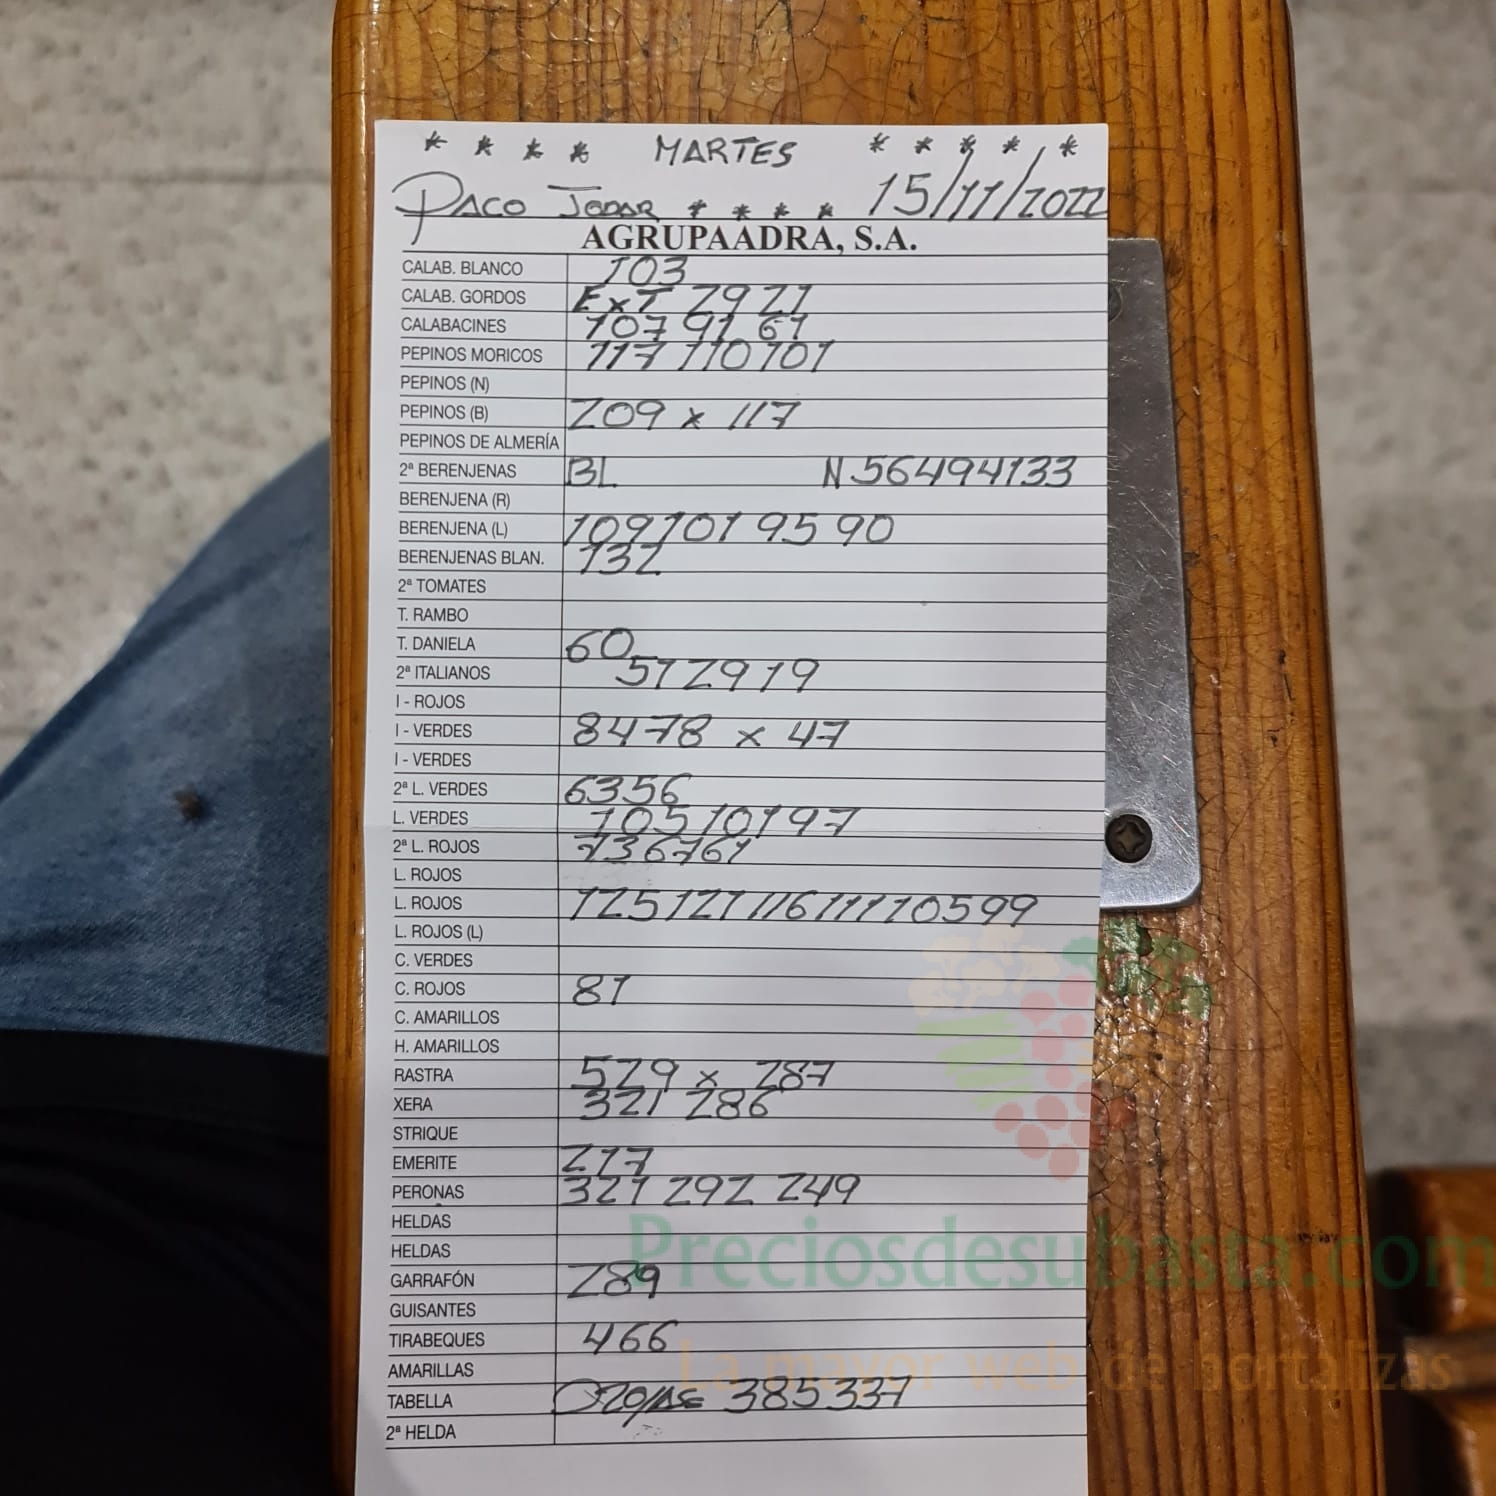 * * * * MARTES * * * * *
PACO JODAR * * * * 15/11/2022
AGRUPAADRA, S.A.
CALAB. BLANCO 103
CALAB. GORDOS EXT 29 21
CALABACINES 107 91 61
PEPINOS MORICOS 117 110 101
PEPINOS (N)
PEPINOS (B) 209 x 117
PEPINOS DE ALMERÍA
2ª BERENJENAS BL N.56494133
BERENJENA (R)
BERENJENA (L) 109 101 95 90
BERENJENAS BLAN. 132
2ª TOMATES
T. RAMBO
T. DANIELA 60
2ª ITALIANOS 51 29 19
I - ROJOS
I - VERDES 84 78 x 47
I - VERDES
2ª L. VERDES 63 56
L. VERDES 105 101 97
2ª L. ROJOS 73 67 61
L. ROJOS
L. ROJOS 125 121 116 111 105 99
L. ROJOS (L)
C. VERDES
C. ROJOS 81
C. AMARILLOS
H. AMARILLOS
RASTRA 529 x 287
XERA 321 286
STRIQUE
EMERITE 217
PERONAS 321 292 249
HELDAS
HELDAS
GARRAFÓN 289
GUISANTES
TIRABEQUES 466
AMARILLAS
TABELLA 385 337
2ª HELDA
Preciosdesubasta.com
La mayor web de hortalizas